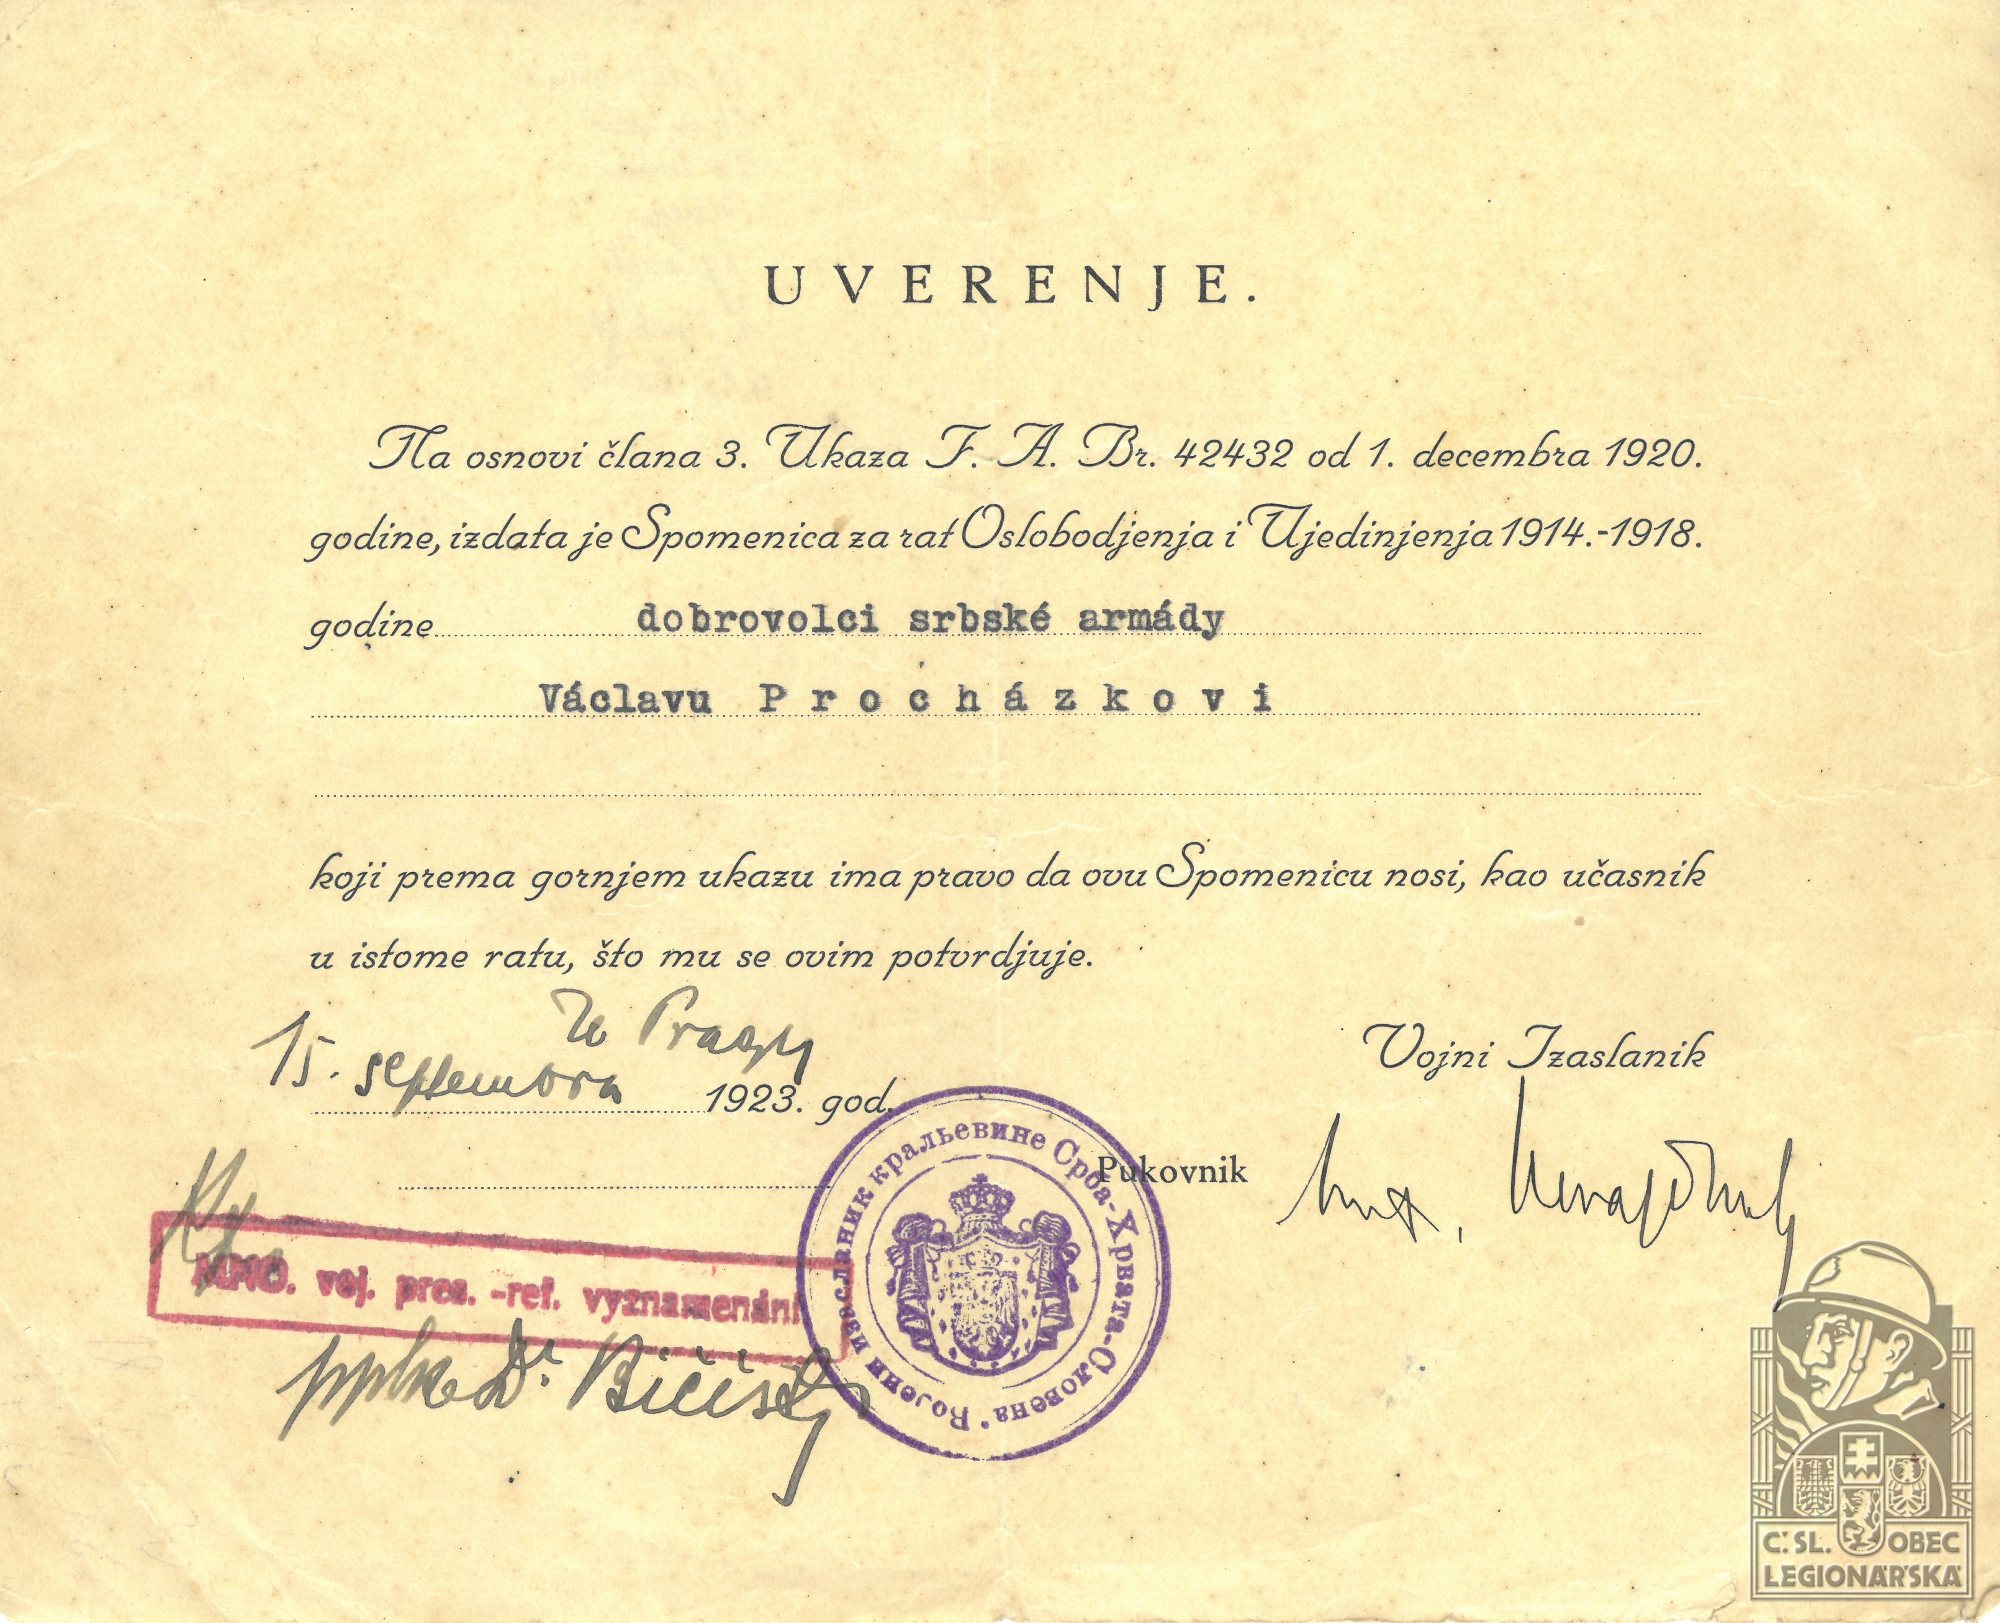 UVERENJE.
Na osnovi člana 3. Ukaza F. A. Br. 42432 od 1. decembra 1920.
godine, izdata je Spomenica za rat Oslobodjenja i Ujedinjenja 1914.-1918.
godine dobrovolci srbské armády
Václavu Procházkovi
koji prema gornjem ukazu ima pravo da ovu Spomenicu nosi, kao učasnik
u istome ratu, što mu se ovim potvrdjuje.
U Pragu
15. septembra 1923. god.
Vojni Izaslanik
Pukovnik
MNO. voj. pres. -ref. vyznamenání
pplk Dr.
Војени изасланик краљевине Срба-Хрвата-Словена
Č. SL. OBEC
LEGIONÁŘSKÁ